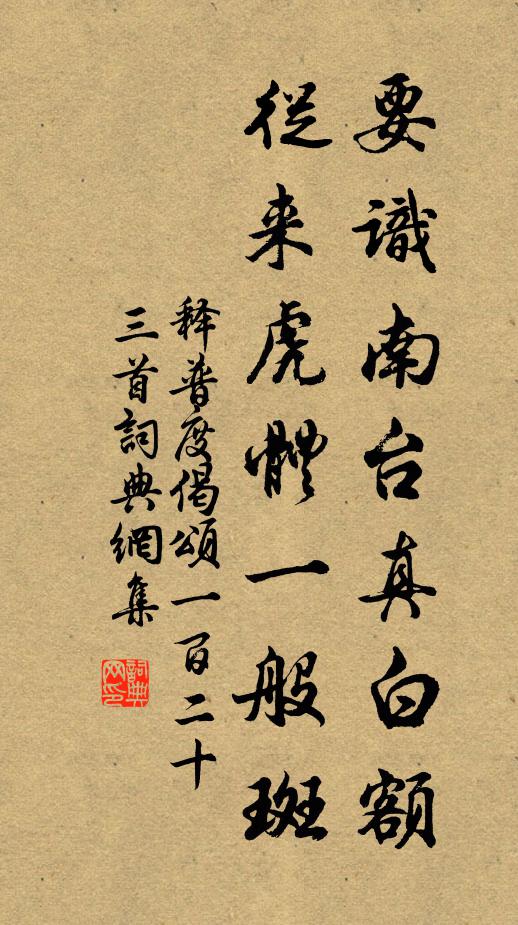 要識南台真白額
從来虎體一般斑
释普度偈頌一百二十
三首詞典網集
詞典网印